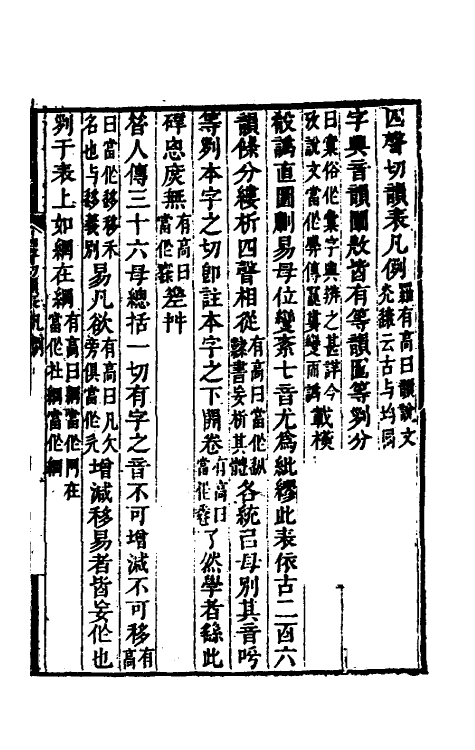 四聲切韻表凡例 羅有高曰韻說文光遠云古与均同
字典音韻 皆有等韻 等列分
曰彙俗作彙字典辨之甚詳今攷說文當作 傳寫 變而譌 載橫
殽譌直圖 易母位變紊七音尤為紕繆此表依古二百六
韻條分縷析四聲相從 有高曰當作 隸書妄析其體 各統己母別其音呼
等列本字之切卽註本字之下開卷 有高曰當作 了然學者繇此
碑 無 有高曰當作 差艸
昔人傳三十六母總括一切有字之音不可增減不可移 有高
曰當作迻移禾名也与移義別 易凡欲 有高曰凡欠旁俱當作旡 增減移易者皆妄作也
列于表上如網在綱 有高曰網當作网在當作 綱當作綱